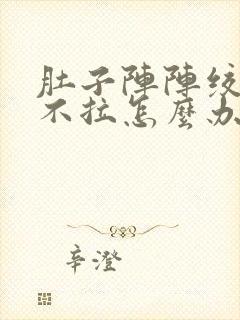 肚子陣陣絞
不拉怎麼办
辛澄